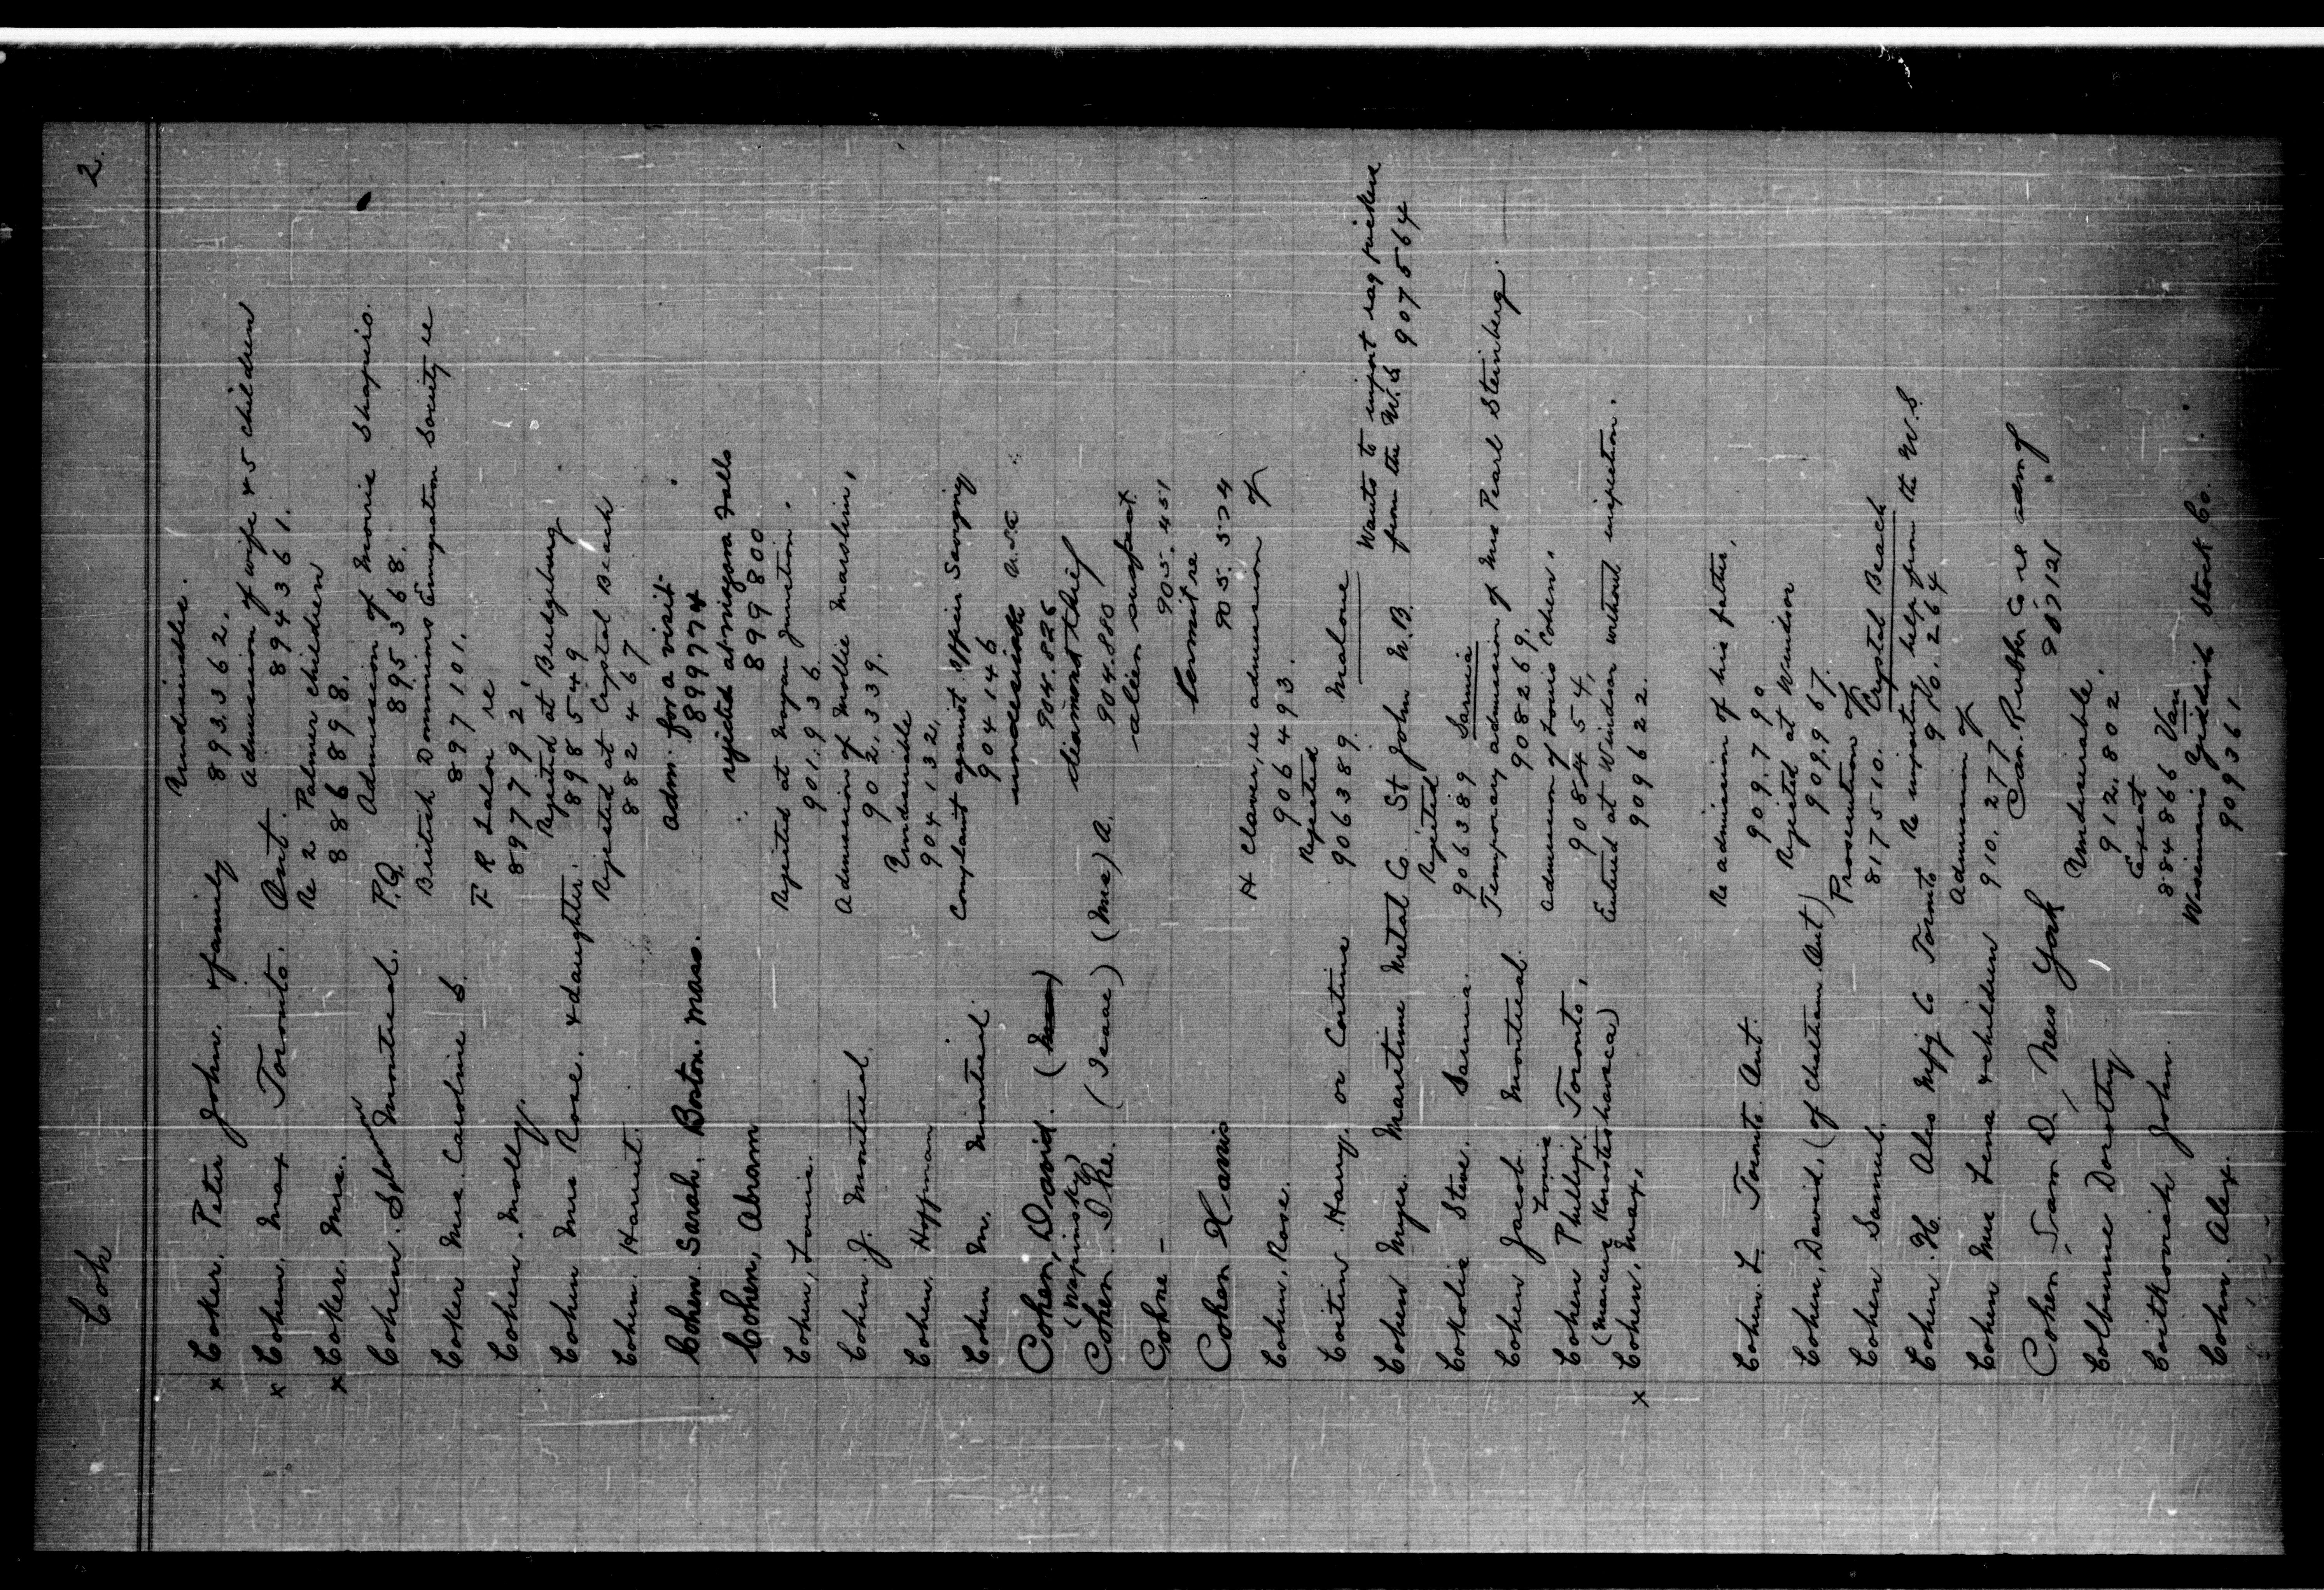 Coh
2.
Undesirable.
x Coker, Peter John. & family
893.362.
Admission of wife & 5 children
x Cohen. Max Toronto. Ont.
894361.
Re 2 Palmer children
x Coker. Mrs.
886898.
Admission of Morris Shapiro.
Cohen. Solomon Montreal. P.Q.
895368.
British Dominions Emigration Society re
Coker Mrs. Caroline S.
897101.
F R Lalor re
Cohen. Molly.
897792.
Rejected at Bridgeburg
Cohen Mrs Rose. & daughter.
898549
Rejected at Crystal Beach
Cohen. Harriet.
882467
Adm. for a visit.
Cohen. Sarah. Boston. Mass.
899774
rejected at Niagara Falls
Cohen, Abram
899800
Rejected at Mogan Junction.
Cohen, Louis.
901.936
Admission of Mollie Marshlin,
Cohen. J. Montreal.
902.339.
Undesirable
Cohen. Hoffman
904132.
Complaint against Officer Savigny
Cohen M. Montreal.
904146
undesirable U.S.A
Cohen, David.
904.826
(Wapinsky)
diamond thief
Cohen. Ike. (Isaac) (Mrs) A.
904.880
alien suspect
Cohne -
905.451
Permit re
Cohen Harris
905.574
H Claver, re admission of
Cohen, Rose.
906493.
Rejected
Coitin Harry. or Cortine
906389. Malone
Wants to import rag pickers
Cohen Myer. Maritime Metal Co. St John N.B. from the U.S 907564
Rejected
Cokolie Steve. Sarnia.
906389 Sarnia
Temporary admission of Mrs Pearl Steinberg.
Cohen Jacob Montreal.
908269.
Louis
Admission of Louis Cohen.
Cohen Phillip. Toronto,
908454,
Entered at Windsor without inspection.
x Cohen, Max,
909622.
Re admission of his father,
Cohen. L. Toronto. Ont.
909.790
Rejected at Windsor
Cohen, David, (of Chatham Ont)
909.967.
Prosecution of
Cohen Samuel.
817510. Crystal Beach
Re importing help from the U.S.
Cohen. H. Ales Mfg Co Toronto
910.264
Admission of
Cohen Mrs Lena & children
910.277
Can. Rubber Co re adm of
Cohen, Sam D, New York
Undesirable.
Colburne Dorothy
912.802.
Exeat
Coitkovich John.
884866 Van
Wiseman's Yiddish Stock Co.
Cohn. Alex.
909361